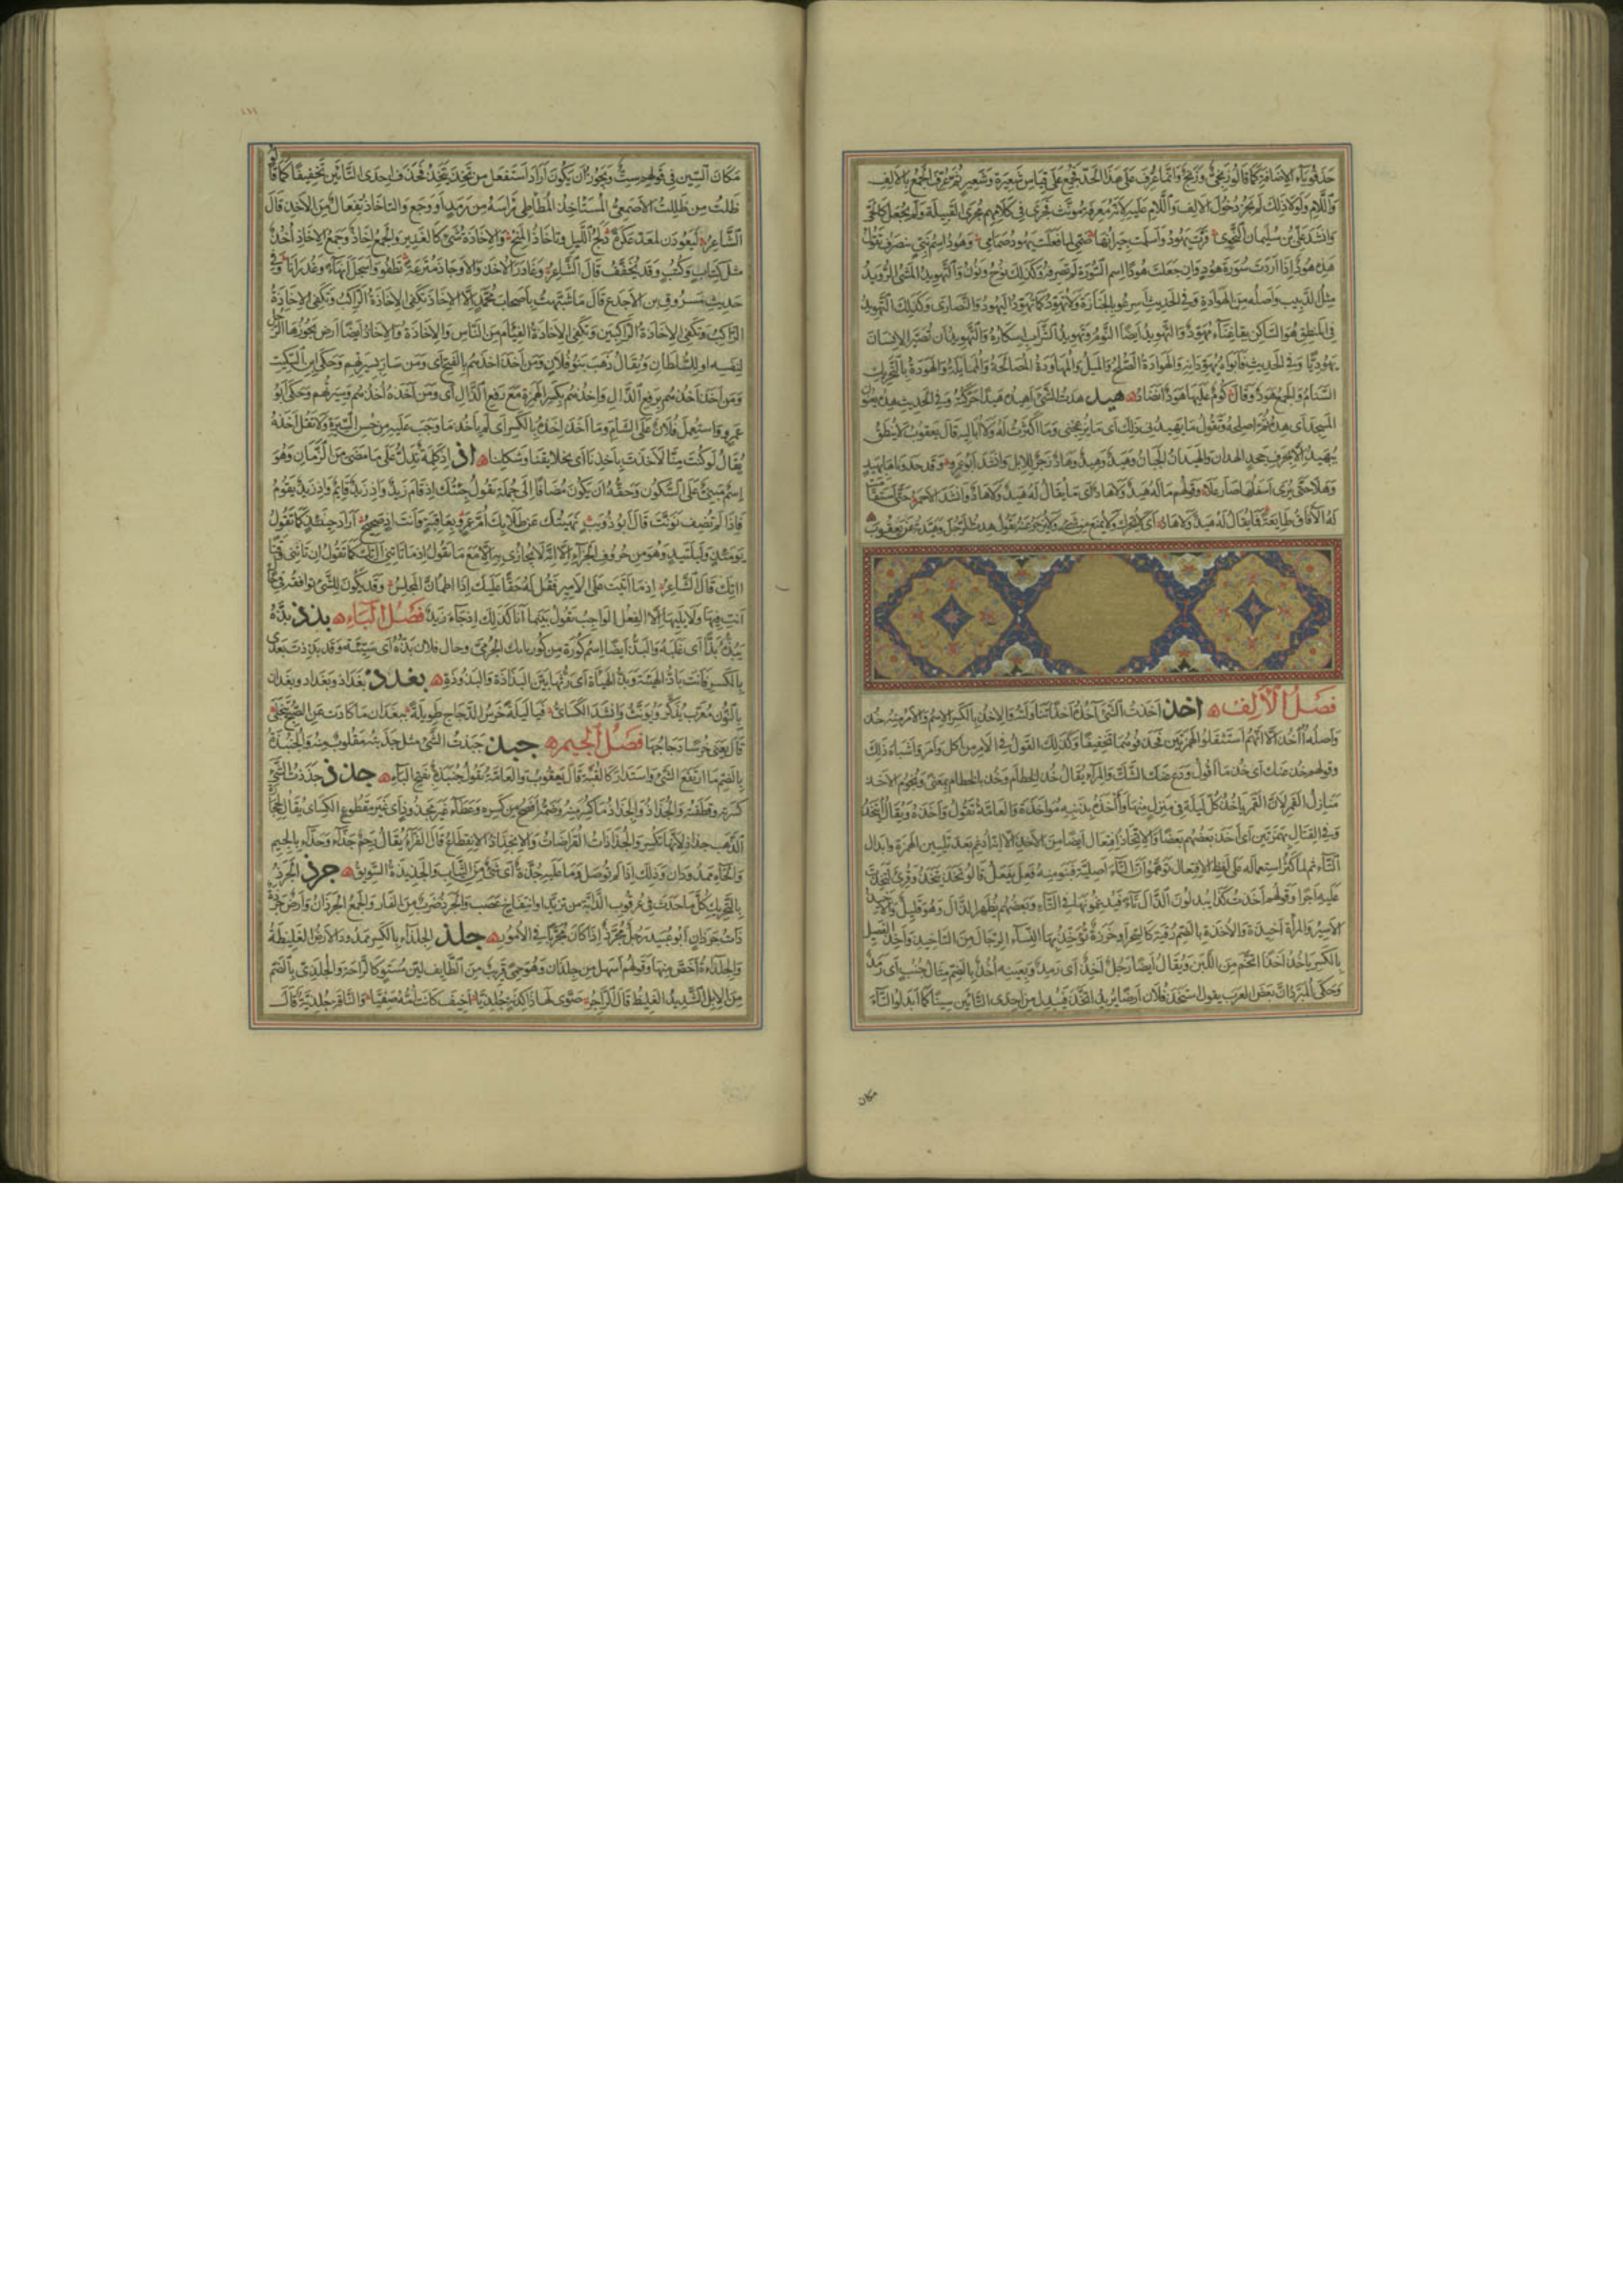 حذفوا ياء الإضافة كما قالوا زنجي وزنج وإنما عرف على هذا الحد فجمع على قياس شعيرة وشعير ثم عرف الجمع بالألف
واللام ولولا ذلك لم يجز دخول الألف واللام عليه لأنه معرفة مؤنث فجرى في كلامهم مجرى القبيلة ولم يجعل كالحي
وأنشد علي بن سليمان النحوي فرت يهود وأسلمت جيرانها صمي لما فعلت يهود صمام وهود اسم نبي ينصرف تقول
هذه هود إذا أردت سورة هود وإن جعلت هودا اسم السورة لم تصرفه وكذلك نوح ونون والتهويد المشي الرويد
مثل الدبيب وأصله من الهوادة وفي الحديث أسرعوا بالجنازة ولا تهودوا كما تهود اليهود والنصارى وكذلك التهويد
في المنطق هو الساكن يقال غناء مهود والتهويد أيضا النوم وتهويد الشراب إسكاره والتهويد أن تصير الإنسان
يهوديا وفي الحديث فأبواه يهودانه والهوادة الصلح والميل والمهاودة المصالحة والممايلة والهودة بالتحريك
السنام والجمع هود وقال كوم عليها هود أنضاد هيد هدت الشيء أهيده هيدا حركته وفي الحديث
المسجد أي هده ثم أصلحه وتقول ما يهيدني ذلك أي ما يزعجني وما أكترث له ولا أباليه قال يعقوب لا ينطق
بيهيد إلا بحرف جحد الهدان والهيدان الجبان وهيد وهيد وهاد زجر للإبل وأنشد أبو عمرو وقد حدوناها بهيد
وهلا حتى يرى أسفلها صار علا وقولهم ما له هيد ولا هاد أي ما يقال له هيد ولا هاد وأنشد الأحمر حتى استقامت
له الآفاق طائعة فما يقال له هيد ولا هاد أي لا يحرك ولا يمنع من شيء ولا يزجر عنه تقول هدت الرجل وهيدته عن يعقوب
فصل الألف أخذ أخذت الشيء آخذه أخذا تناولته والإخذ بالكسر الاسم والأمر منه خذ
وأصله أأخذ إلا أنهم استثقلوا الهمزتين فحذفوهما تخفيفا وكذلك القول في الأمر من أكل وأمر وأشباه ذلك
وقولهم خذ عنك أي خذ ما أقول ودع عنك الشك والمراء يقال خذ الخطام وخذ بالخطام بمعنى ونجوم الأخذ
منازل القمر لأن القمر يأخذ كل ليلة في منزل منها وآخذه بذنبه مؤاخذة والعامة تقول واخذه ويقال ائتخذوا
في القتال بهمزتين أي أخذ بعضهم بعضا والاتخاذ افتعال أيضا من الأخذ إلا أنه أدغم بعد تليين الهمزة وإبدال
التاء ثم لما كثر استعماله على لفظ الافتعال توهموا أن التاء أصلية فبنوا منه فعل يفعل قالوا تخذ يتخذ وقرئ لتخذت
عليه أجرا وقولهم أخذت كذا يبدلون الذال تاء فيدغمونها في التاء وبعضهم يظهر الذال وهو قليل والأخيذ
الأسير والمرأة أخيذة والأخذة بالضم رقية كالسحر أو خرزة تؤخذ بها النساء الرجال من التأخيذ وأخذ الفصيل
بالكسر يأخذ أخذا اتخم من اللبن ويقال أيضا رجل أخذ أي رمد وبعينه أخذ بالضم مثال جنب أي رمد
وحكى المبرد أن بعض العرب يقول استخذ فلان أرضا يريد اتخذ فيبدل من إحدى التاءين سينا كما أبدلوا التاء
مكان
مكان السين في قولهم ست ويجوز أن يكون أراد استفعل من تخذ يتخذ فحذف إحدى التاءين تخفيفا كما قالوا
ظلت من ظللت الأصمعي المستأخذ المطأطئ رأسه من رمد أو وجع والتأخاذ تفعال من الأخذ قال
الشاعر ليعودن لمعد عكرة دلج الليل وتأخاذ المنح والإخاذة شيء كالغدير والجمع إخاذ وجمع الإخاذ أخذ
مثل كتاب وكتب وقد يخفف قال الشاعر وغادر الأخذ والأوجاذ مترعة تطفو وأسجل أنهاء وغدرانا وفي
حديث مسروق بن الأجدع قال ما شبهت بأصحاب محمد إلا الإخاذ تكفي الإخاذة الراكب وتكفي الإخاذة
الراكبين وتكفي الإخاذة الفئام من الناس والإخاذة والإخاذ أيضا أرض يحوزها الرجل
لنفسه أو للسلطان ويقال ذهب بنو فلان ومن أخذ أخذهم بالفتح أي ومن سار بسيرتهم وحكى ابن السكيت
ومن أخذ أخذهم برفع الذال وإخذهم بكسر الهمزة مع رفع الذال أي ومن أخذه أخذهم وسيرتهم وحكى أبو
عمرو استعمل فلان على الشام وما أخذ إخذه بالكسر أي لم يأخذ ما وجب عليه من حسن السيرة ولا تقل أخذه
يقال لو كنت منا لأخذت بإخذنا أي بخلائقنا وشكلنا إذ إذ كلمة تدل على ما مضى من الزمان وهو
اسم مبني على السكون وحقه أن يكون مضافا إلى جملة تقول جئتك إذ قام زيد وإذ زيد قائم وإذ زيد يقوم
فإذا لم تضف نونت قال أبو ذؤيب نهيتك عن طلابك أم عمرو بعاقبة وأنت إذ صحيح أراد حينئذ كما تقول
يومئذ وليلتئذ وهو من حروف الجزاء إلا أنه لا يجازى به إلا مع ما تقول إذ ما تأتني آتك كما تقول إن تأتني وقتا
آتك قال الشاعر إذ ما أتيت على الأمير فقل له حقا عليك إذا اطمأن المجلس وقد يكون للشيء توافقه في حال
أنت فيها ولا يليها إلا الفعل الواجب تقول بينما أنا كذلك إذ جاء زيد فصل الباء بذذ بذه
يبذه بذا أي غلبه والبذ أيضا اسم كورة من كور بابك الخرمي وحال فلان بذة أي سيئة وقد بذذت بعدي
بالكسر فأنت باذ الهيئة وبذ الهيئة أي رثها بين البذاذة والبذوذة بغدذ بغداذ وبغداد وبغدان
بالنون معرب يذكر ويؤنث وأنشد الكسائي فيا ليلة خرس الدجاج طويلة ببغدان ما كادت عن الصبح تنجلي
قال يعني خرسا دجاجها فصل الجيم جبذ جبذت الشيء مثل جذبته مقلوب منه والجنبذة
بالضم ما ارتفع من الشيء واستدار كالقبة قال يعقوب والعامة تقول جنبذة بفتح الباء جذذ جذذت الشيء
كسرته وقطعته والجذاذ والجذاذ ما كسر منه وضمه أفصح من كسره وعطاء غير مجذوذ أي غير مقطوع الكسائي يقال لحجارة
الذهب جذاذ لأنها تكسر والجذاذات القراضات والانجذاذ الانقطاع قال الفراء يقال رحم جذاء وحذاء بالجيم
والحاء ممدودان وذلك إذا لم توصل وما عليه جذة أي شيء من الثياب والجذيذة السويق جرذ الجرذ
بالتحريك كل ما حدث في عرقوب الدابة من تزيد أو انتفاخ عصب والجرذ ضرب من الفأر والجمع الجرذان وأرض جرذة
ذات جرذان أبو عبيد رجل مجرذ إذا كان مجربا في الأمور جلذ الجلذاء بالكسر ممدود الأرض الغليظة
والجلذاءة أخص منها وقولهم أسهل من جلذان وهو حمى قريب من الطائف لين مستو كالراحة والجلذي بالضم
من الإبل الشديد الغليظ قال الراجز صوى لها ذا كدنة جلذيا أخيف كانت أمه صفيا والناقة جلذية قال